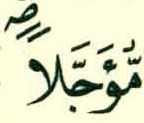 مُّؤَجَّلًا ۗ